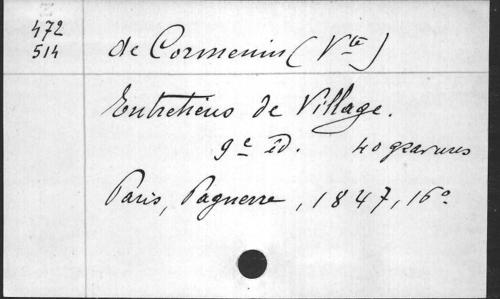 472
514
de Cormenin (Vte)
Entretiens de Village.
9e éd. 40 gravures
Paris, Pagnerre, 1847, 16o.